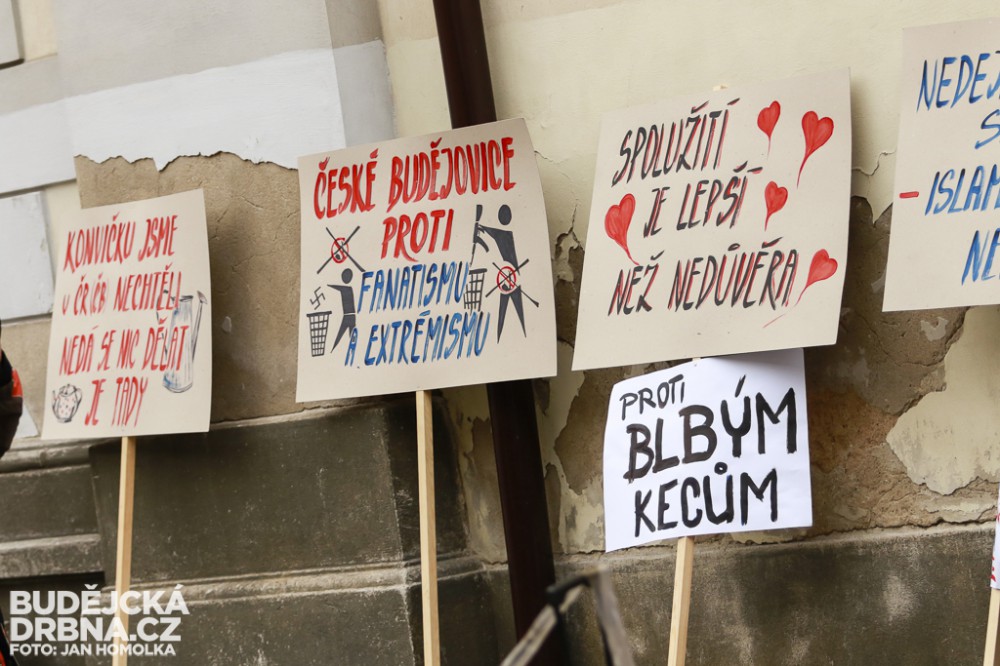 KONVIČKU JSME
V ČR(ČB) NECHTĚLI
NEDÁ SE NIC DĚLAT
JE TADY
ČESKÉ BUDĚJOVICE
PROTI
FANATISMU
A EXTRÉMISMU
SPOLUŽITÍ
JE LEPŠÍ
NEŽ NEDŮVĚRA
PROTI
BLBÝM
KECŮM
NEDEJ
- ISLAM
BUDĚJCKÁ
DRBNA.CZ
FOTO: JAN HOMOLKA